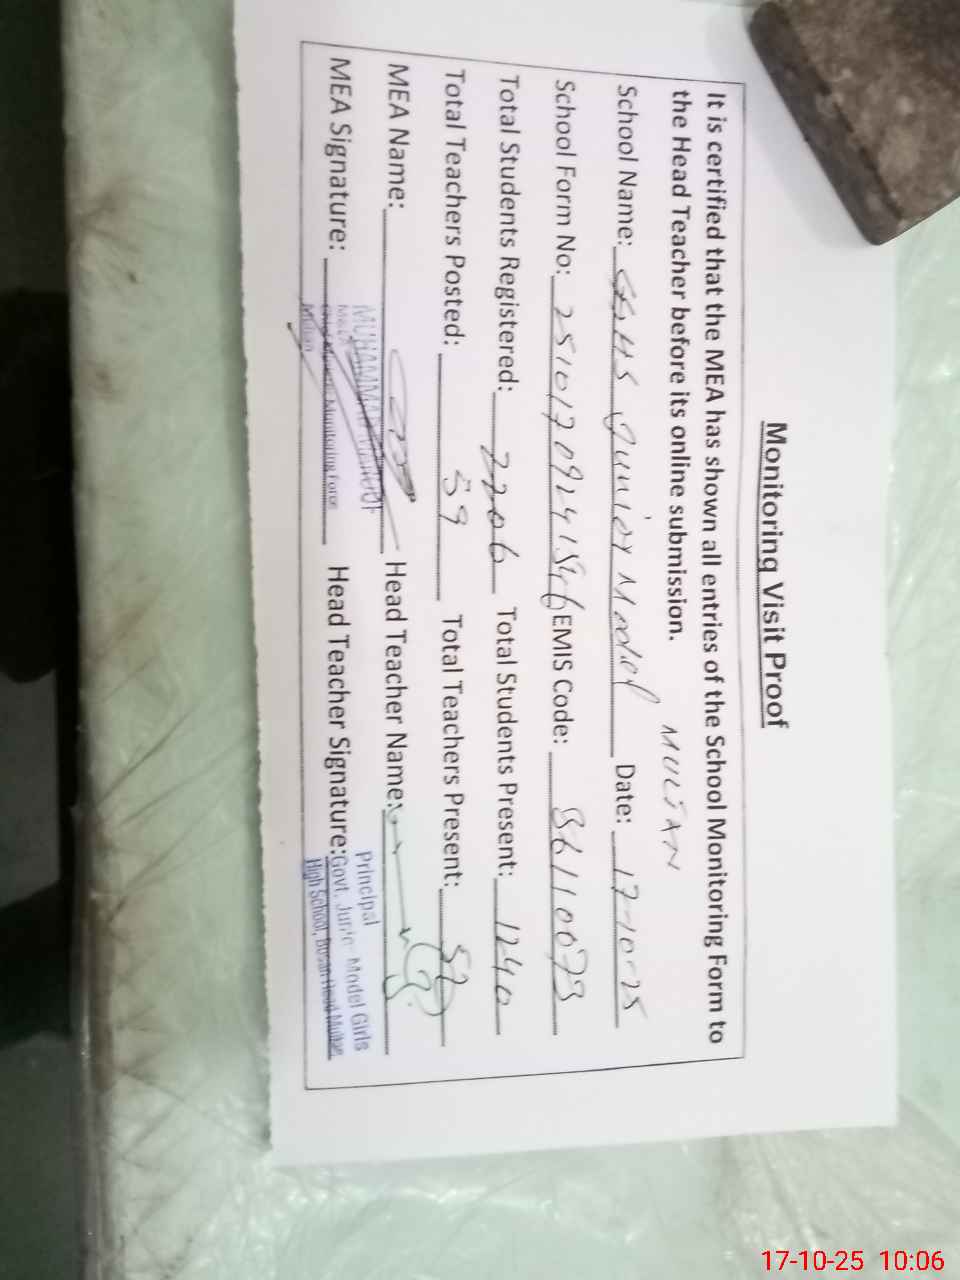 Monitoring Visit Proof
It is certified that the MEA has shown all entries of the School Monitoring Form to
the Head Teacher before its online submission.
MULTAN
School Name: GGHS Junior Model Date: 17-10-25
School Form No: Z5101709241546 EMIS Code: 36110073
Total Students Registered: 2206 Total Students Present: 1240
Total Teachers Posted: 59 Total Teachers Present: 52
MEA Name: Head Teacher Name:
MUHAMMAD
Principal
MEA Signature: Head Teacher Signature:
Monitoring Force
Multan
Govt. Junior Model Girls
High School, Bosan Road Multan
17-10-25 10:06